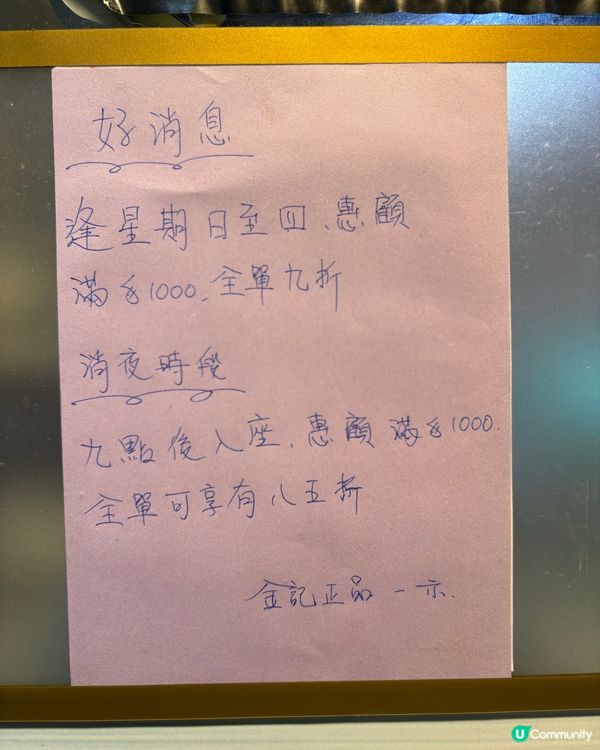 好消息
逢星期日至四、惠顧
滿$1000、全單九折
消夜時段
九點後入座、惠顧滿$1000.
全單可享有八五折
金記正品一示.
U Community